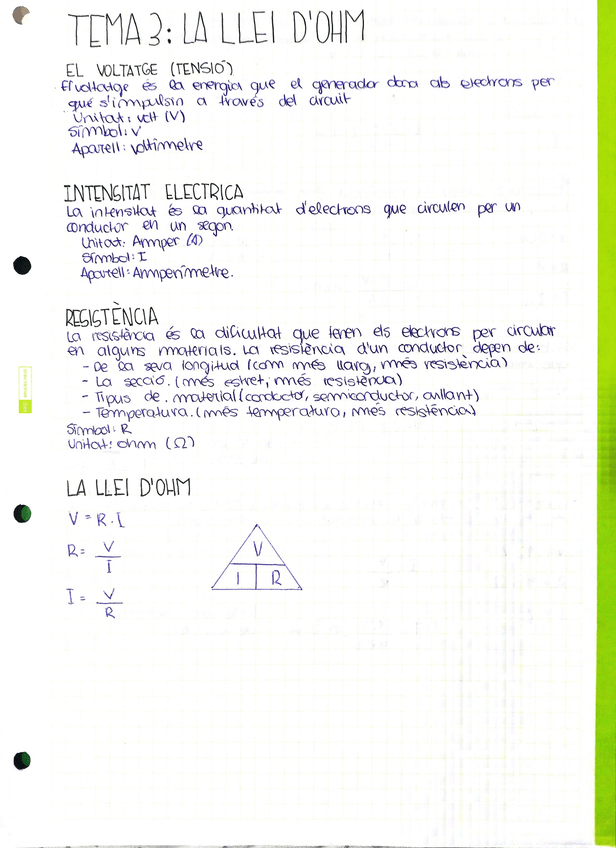 TEMA 3: LA LLEI D'OHM
EL VOLTATGE (TENSIÓ)
El voltatge és la energia que el generador dona als electrons per
què s'impulsin a través del circuit
Unitat: volt (V)
Símbol: V
Aparell: voltímetre
INTENSITAT ELECTRICA
La intensitat és la quantitat d'electrons que circulen per un
conductor en un segon.
Unitat: Ampper (A)
Símbol: I
Aparell: Amperímetre.
RESISTÈNCIA
La resistència és la dificultat que tenen els electrons per circular
en alguns materials. La resistència d'un conductor depen de:
- De la seva longitud (com més llarg, més resistència)
- La secció. (més estret, més resistència)
- Tipus de. material (conductor, semiconductor, aïllant)
- Temperatura. (més temperatura, més resistència)
Símbol: R
Unitat: ohm (Ω)
LA LLEI D'OHM
V = R · I
R = V / I
I = V / R
V
I R